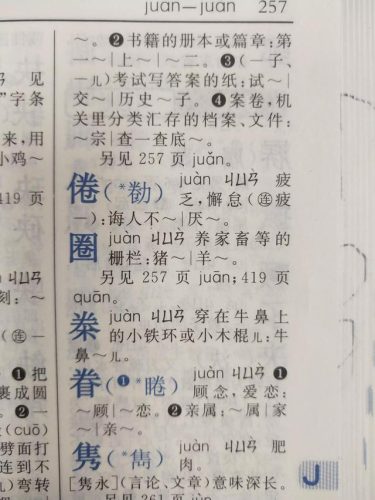 juan—juan 257
见
”字条
来，用
小鸡～
419 页
刻：～
❶把
裹成圆
❷一
(cuō)
劈面打
连到不
）弯转
～。❷书籍的册本或篇章：第
一～|上～|二～。❸(一子、
一儿)考试写答案的纸：试～|
交～|历史～子。❹案卷，机
关里分类汇存的档案、文件：
～宗|查一查底～。
另见 257 页 juǎn。
倦(*勌) juàn ㄐㄩㄢˋ 疲
乏，懈怠(㊀疲
一)：诲人不～|厌～。
圈 juàn ㄐㄩㄢˋ 养家畜等的
栅栏：猪～|羊～。
另见 257 页 juān；419 页
quān。
桊 juàn ㄐㄩㄢˋ 穿在牛鼻上
的小铁环或小木棍儿：牛
鼻～儿。
眷(❶*睠) juàn ㄐㄩㄢˋ ❶
顾念，爱恋：
～顾|～恋。❷亲属：～属|家
～|亲～。
隽(*雋) juàn ㄐㄩㄢˋ 肥
肉。
[隽永](言论、文章)意味深长。
另见 261 页 jùn。
J